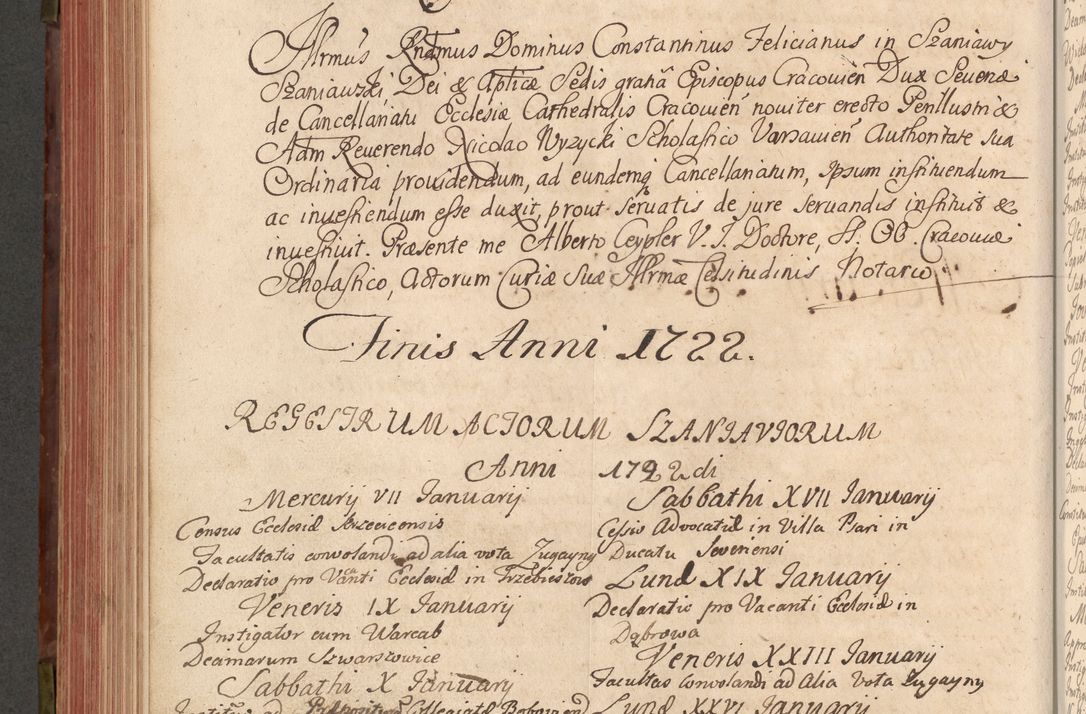 Illrmus Rndmus Dominus Constantinus Felicianus in Szaniawy
Szaniawski, Dei & Apticæ Sedis gratia Episcopus Cracovien Dux Severiæ
de Cancellariatu Ecclesiæ Cathedralis Cracovien noviter erecto Perillustri &
Adm Reverendo Nicolao Wyzycki Scholastico Varsavien Authoritate sua
Ordinaria providendum, ad eundemq Cancellariatum, Ipsum instituendum
ac investiendum esse duxit, prout servatis de jure servandis instituit &
investivit. Præsente me Alberto Ceypler V. J. Doctore, SS. OO. Cracoviæ
Scholastico, Actorum Curiæ Suæ Illrmæ Celsitudinis Notario
Finis Anni 1722.
REGESTRUM ACTORUM SZANIAVIORUM
Anni 1722di
Mercurij VII Ianuarij
Census Ecclesiæ
Facultatis convolandi ad alia vota Zugayny
Declaratio pro Vcanti Ecclesiæ in Trzebieszow
Veneris IX Ianuarij
Instigator cum Warcab
Decimarum Szwarszowice
Sabbathi X Ianuarij
Præpositu Collegiatæ Bobovien
Sabbathi XVII Ianuarij
Cessio Advocatiæ in Villa Psari in
Ducatu Severiensi
Lunæ XIX Ianuarij
Declaratio pro Vacanti Ecclesiæ in
Dąbrowa
Veneris XXIII Ianuarij
Facultas convolandi ad Alia Vota Zugayny
Lunæ XXVI Ianuarij